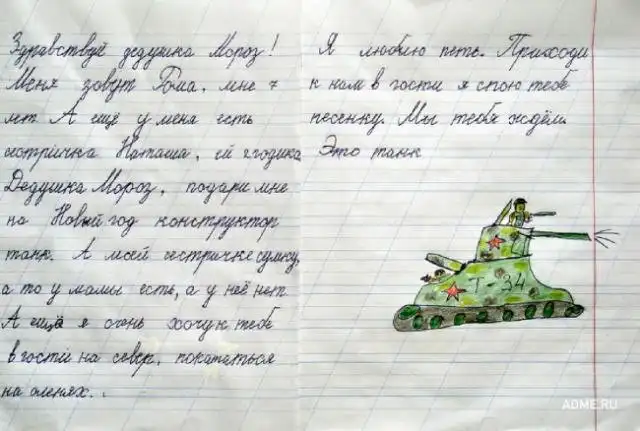 Здравствуй дедушка Мороз!
Меня зовут Гоша, мне 7
лет А ещё у меня есть
сестричка Наташа, ей 2 годика
Дедушка Мороз, подари мне
на Новый год конструктор
танк. А моей сестричке сумку,
а то у мамы есть, а у неё нет
А ещё я очень хочу к тебе
в гости на север, покататься
на оленях.
Я люблю петь. Приходи
к нам в гости я спою тебе
песенку. Мы тебя ждём
Это танк
Т-34
ADME.RU